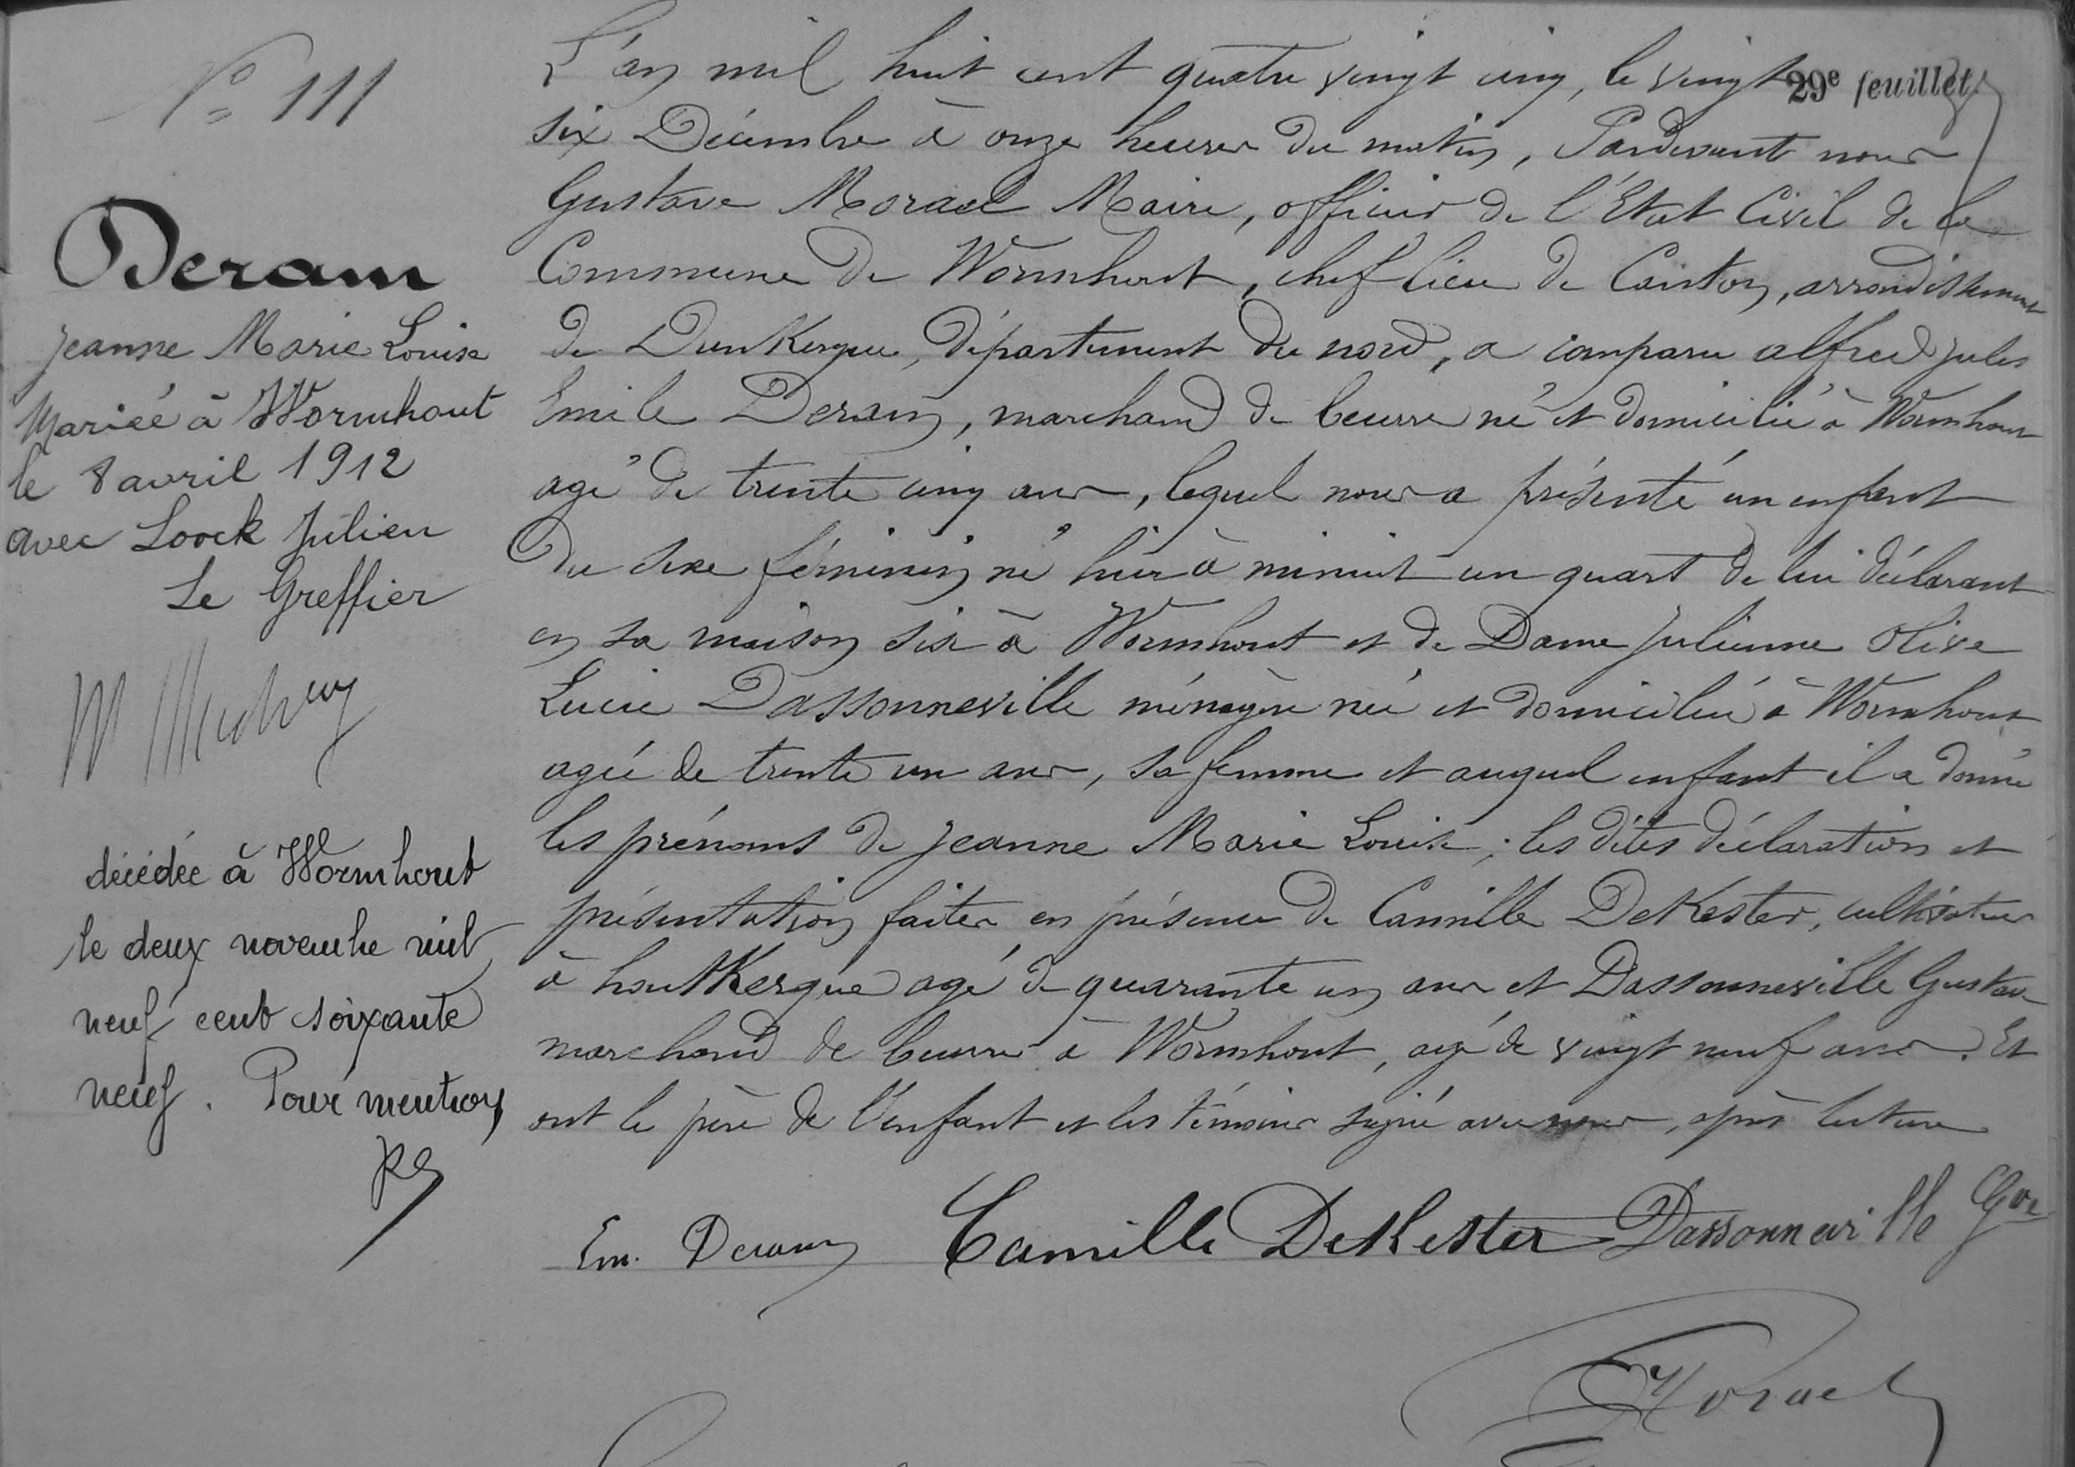 N° 111
Deram
Jeanne Marie Louise
Mariée à Wormhout
le 8 avril 1912
avec Loock Julien
Le Greffier
décédée à Wormhout
le deux novembre mil
neuf cent soixante
neuf. Pour mention
29e feuillet
L'an mil huit cent quatre vingt cinq, le vingt
six Décembre à onze heures du matin, Pardevant nous
Gustave Morael Maire, officier de l'Etat Civil de la
Commune de Wormhout, chef lieu de Canton, arrondissement
de Dunkerque, département du nord, a comparu alfred jules
Emile Deram, marchand de beurre né et domicilié à Wormhout
agé de trente cinq ans, lequel nous a présenté un enfant
du sexe féminin né hier à minuit un quart de lui déclarant
en sa maison sise à Wormhout et de Dame Julienne Olive
Lucie Dassonneville ménagère née et domiciliée à Wormhout
agée de trente un ans, sa femme et auquel enfant il a donné
les prénoms de Jeanne Marie Louise; les dites déclaration et
présentation faites en présence de Camille DeKester, cultivateur
à houtkerque agé de quarante un ans et Dassonneville Gustave
marchand de beurre à Wormhout, agé de vingt neuf ans. Et
ont le père de l'enfant et les témoins signé avec nous, après lecture
Em. Deram Camille DeKester Dassonneville Gve
Morael